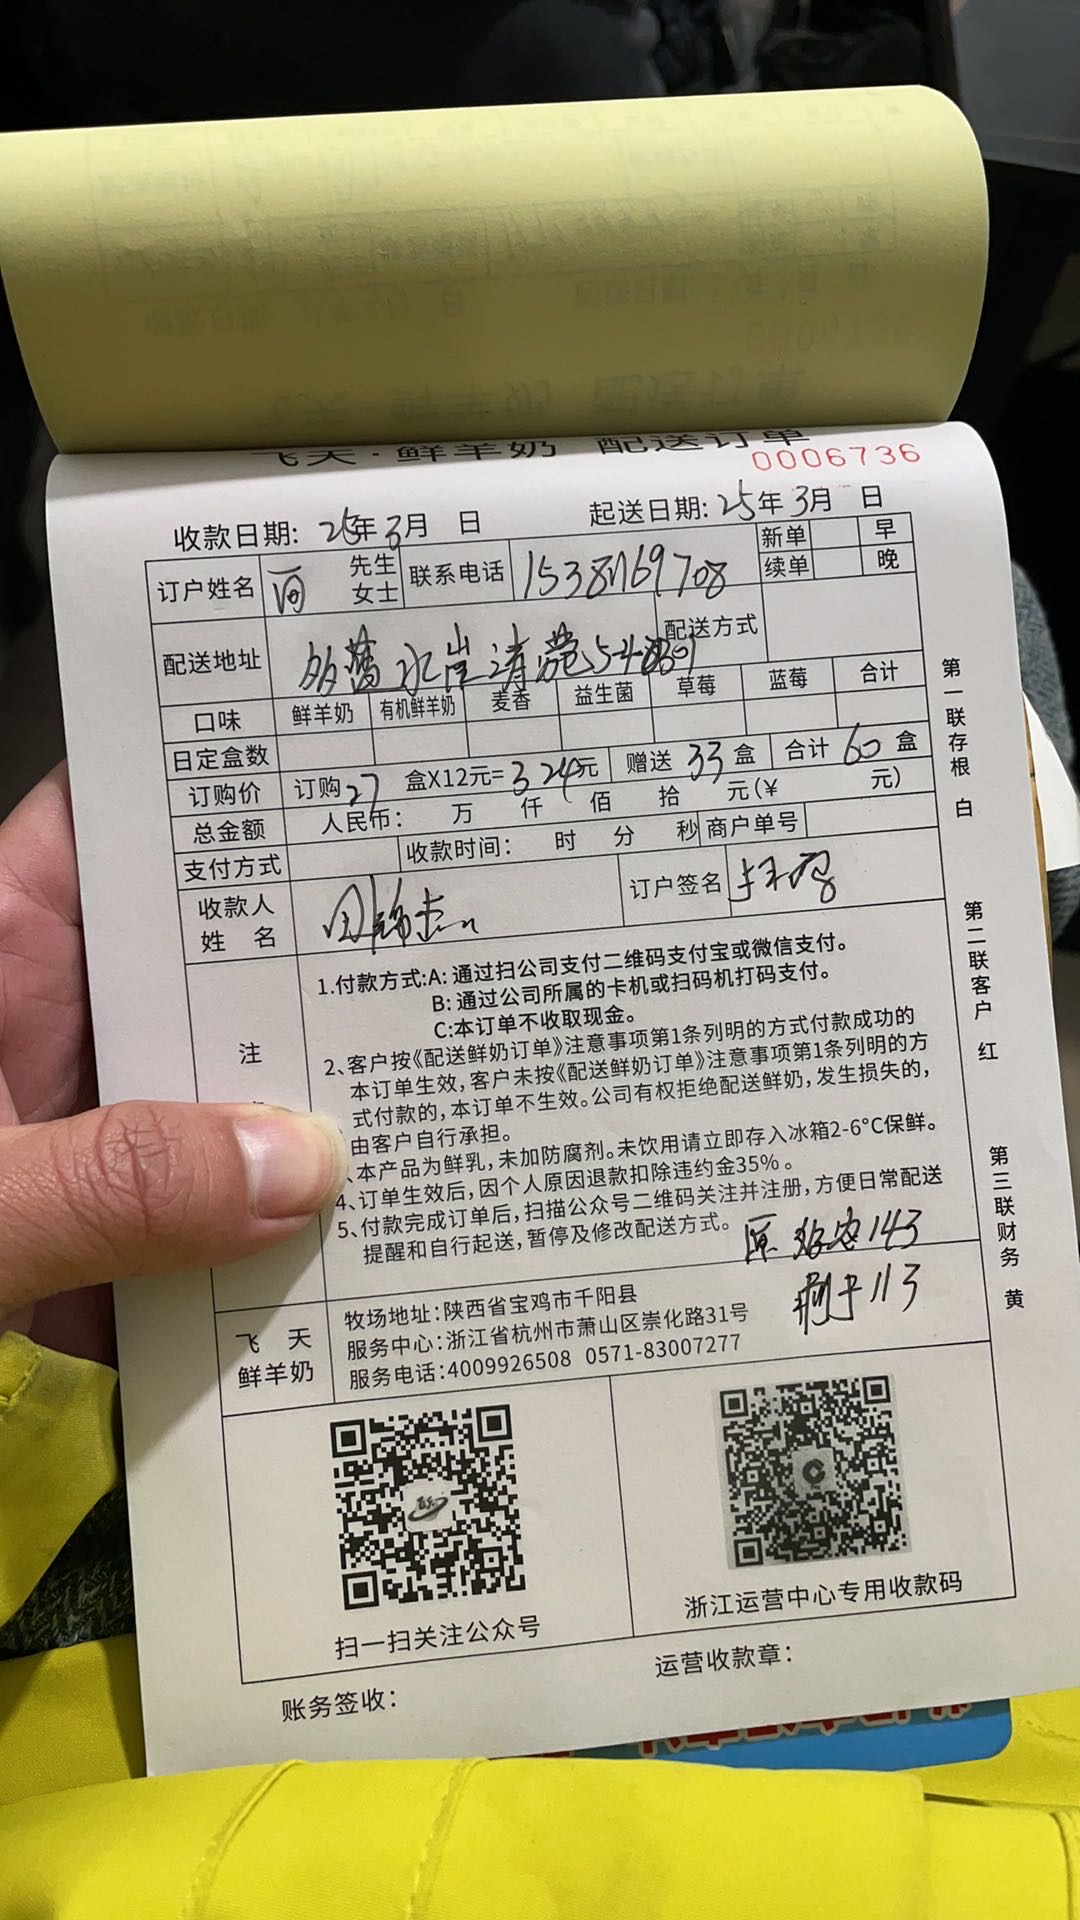 飞天·鲜羊奶 配送订单
0006736
收款日期: 25年3月 日 起送日期: 25年3月 日
订户姓名 先生 女士 联系电话 新单 续单 早 晚
配送地址 水岸清苑 配送方式
口味 鲜羊奶 有机鲜羊奶 麦香 益生菌 草莓 蓝莓 合计
日定盒数
订购价 订购27 盒X12元=324元 赠送 33 盒 合计 60 盒
总金额 人民币: 万 仟 佰 拾 元(¥ 元)
支付方式 收款时间: 时 分 秒 商户单号
收款人姓名 订户签名
注
1.付款方式:A: 通过扫公司支付二维码支付宝或微信支付。
B: 通过公司所属的卡机或扫码机打码支付。
C:本订单不收取现金。
2、客户按《配送鲜奶订单》注意事项第1条列明的方式付款成功的
本订单生效,客户未按《配送鲜奶订单》注意事项第1条列明的方
式付款的,本订单不生效。公司有权拒绝配送鲜奶,发生损失的,
由客户自行承担。
、本产品为鲜乳,未加防腐剂。未饮用请立即存入冰箱2-6°C保鲜。
4、订单生效后,因个人原因退款扣除违约金35%。
5、付款完成订单后,扫描公众号二维码关注并注册,方便日常配送
提醒和自行起送,暂停及修改配送方式。
原 143
剩 113
飞天鲜羊奶
牧场地址:陕西省宝鸡市千阳县
服务中心:浙江省杭州市萧山区崇化路31号
服务电话:4009926508 0571-83007277
扫一扫关注公众号
浙江运营中心专用收款码
账务签收:
运营收款章:
第一联存根 白
第二联客户 红
第三联财务 黄